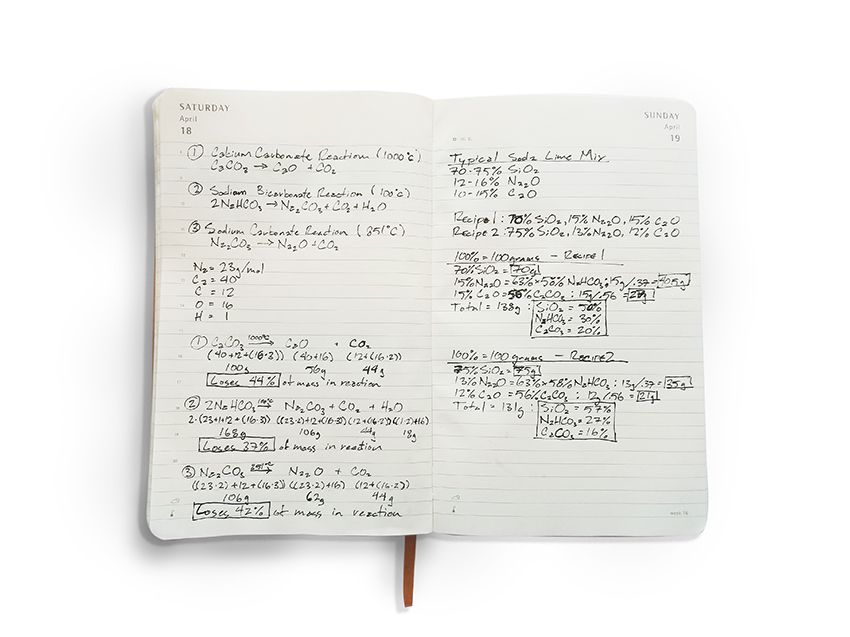 SATURDAY
April
18
① Calcium Carbonate Reaction (1000°C)
CaCO₃ → CaO + CO₂
② Sodium Bicarbonate Reaction (100°C)
2NaHCO₃ → Na₂CO₃ + CO₂ + H₂O
③ Sodium Carbonate Reaction (851°C)
Na₂CO₃ → Na₂O + CO₂
Na = 23g/mol
Ca = 40
C = 12
O = 16
H = 1
① CaCO₃ 1000°C→ CaO + CO₂
(40+12+(16·3)) (40+16) (12+(16·2))
100g 56g 44g
Loses 44% of mass in reaction
② 2NaHCO₃ 100°C→ Na₂CO₃ + CO₂ + H₂O
2·(23+1+12+(16·3)) ((23·2)+12+(16·3)) (12+(16·2)) ((1·2)+16)
168g 106g 44g 18g
Loses 37% of mass in reaction
③ Na₂CO₃ 851°C→ Na₂O + CO₂
((23·2)+12+(16·3)) ((23·2)+16) (12+(16·2))
106g 62g 44g
Loses 42% of mass in reaction
SUNDAY
April
19
Typical Soda Lime Mix
70-75% SiO₂
12-16% Na₂O
10-15% CaO
Recipe 1: 70% SiO₂, 15% Na₂O, 15% CaO
Recipe 2: 75% SiO₂, 13% Na₂O, 12% CaO
100% = 100 grams - Recipe 1
70% SiO₂ = 70g
15% Na₂O = 63% × 58% NaHCO₃: 15g/.37 = 40.5g
15% CaO = 56% CaCO₃: 15g/.56 = 27g
Total = 138g: SiO₂ = 50%
NaHCO₃ = 30%
CaCO₃ = 20%
100% = 100 grams - Recipe 2
75% SiO₂ = 75g
13% Na₂O = 63% × 58% NaHCO₃: 13g/.37 = 35g
12% CaO = 56% CaCO₃: 12g/.56 = 21g
Total = 131g: SiO₂ = 57%
NaHCO₃ = 27%
CaCO₃ = 16%
week 16